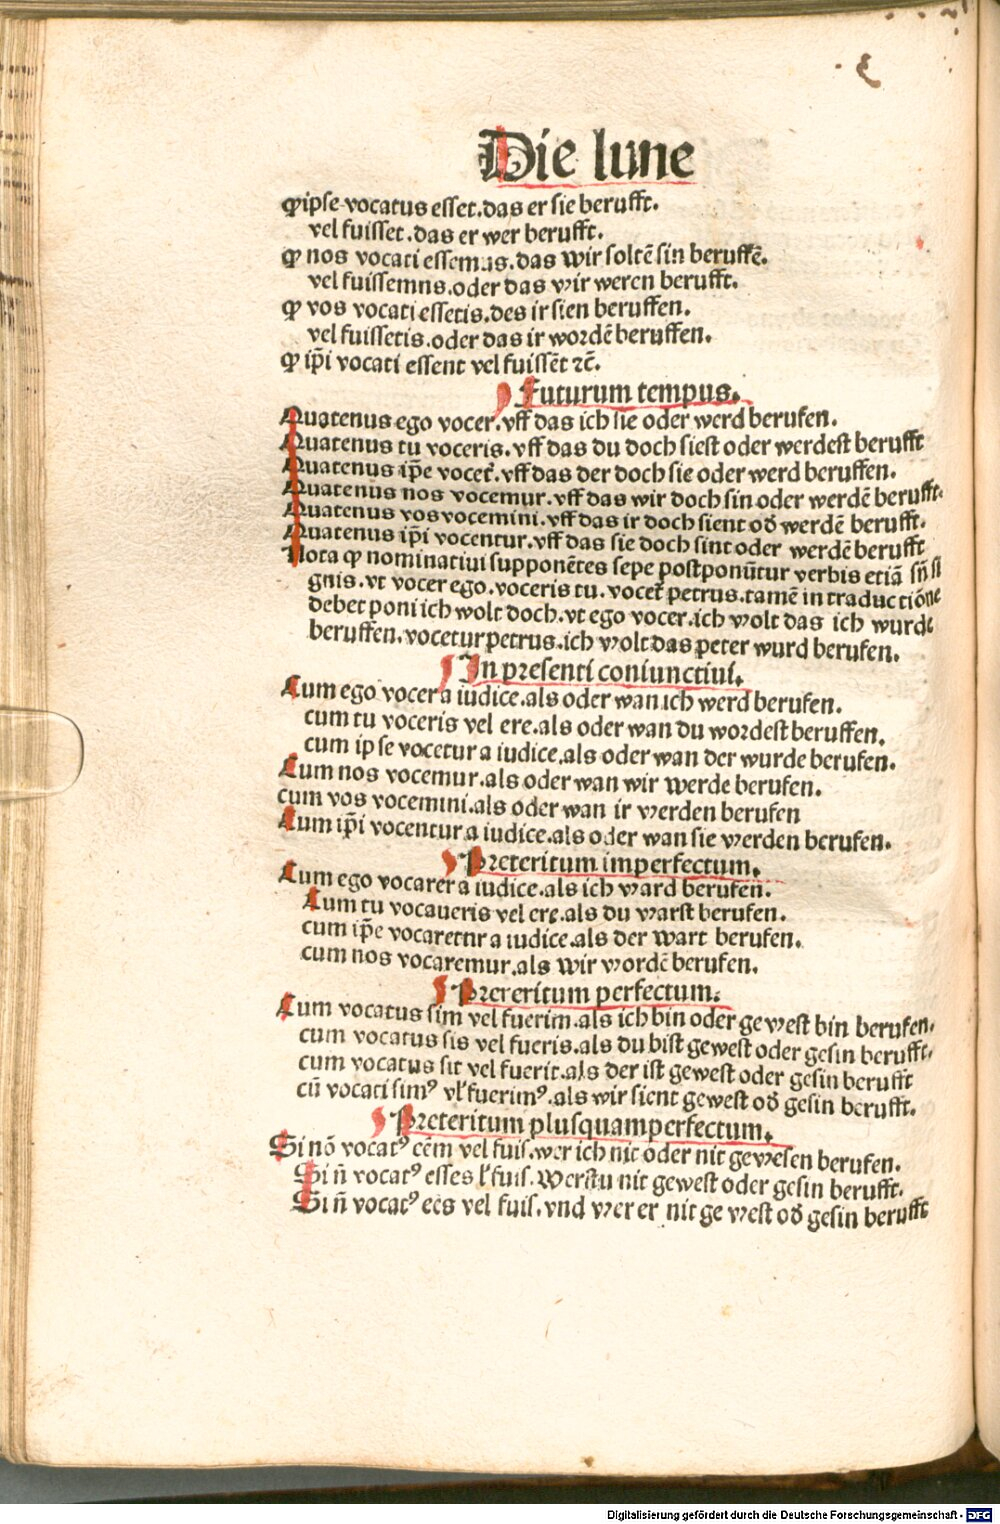 Die lune
ꝙ ipse vocatus esset. das er sie berufft.
vel fuisset. das er wer berufft.
ꝙ nos vocati essemus. das wir soltē sin beruffē.
vel fuissemns. oder das wir weren berufft.
ꝙ vos vocati essetis. des ir sien beruffen.
vel fuissetis. oder das ir wordē beruffen.
ꝙ ip̄i vocati essent vel fuissēt ⁊c̄.
Futurum tempus.
Quatenus ego vocer. vff das ich sie oder werd berufen.
Quatenus tu voceris. vff das du doch siest oder werdest berufft
Quatenus ip̄e vocet᷑. vff das der doch sie oder werd beruffen.
Quatenus nos vocemur. vff das wir doch sin oder werdē berufft.
Quatenus vos vocemini. vff das ir doch sient od̄ werdē berufft.
Quatenus ip̄i vocentur. vff das sie doch sint oder werdē berufft
Nota ꝙ nominatiui supponētes sepe postponūtur verbis etiā sn̄ si
gnis. vt vocer ego. voceris tu. vocet᷑ petrus. tamē in traductiōne
debet poni ich wolt doch. vt ego vocer. ich wolt das ich wurde
beruffen. vocetur petrus. ich wolt das peter wurd berufen.
In presenti coniunctiui.
Cum ego vocer a iudice. als oder wan ich werd berufen.
cum tu voceris vel ere. als oder wan du wordest beruffen.
cum ipse vocetur a iudice. als oder wan der wurde berufen.
Cum nos vocemur. als oder wan wir werde berufen.
cum vos vocemini. als oder wan ir werden berufen
Cum ip̄i vocentur a iudice. als oder wan sie werden berufen.
Preteritum imperfectum.
Cum ego vocarer a iudice. als ich ward berufen.
Cum tu vocaueris vel ere. als du warst berufen.
cum ip̄e vocaretnr a iudice. als der wart berufen.
cum nos vocaremur. als wir wordē berufen.
Prereritum perfectum.
Cum vocatus sim vel fuerim. als ich bin oder gewest bin berufen.
cum vocatus sis vel fueris. als du bist gewest oder gesin berufft.
cum vocatus sit vel fuerit. als der ist gewest oder gesin berufft
cū vocati simꝰ vl̕ fuerimꝰ. als wir sient gewest od̄ gesin berufft.
Preteritum plusquamperfectum.
Si nō vocatꝰ eēm vel fuis. wer ich nit oder nit gewesen berufen.
Si n̄ vocatꝰ esses l̕ fuis. Werstu nit gewest oder gesin berufft.
Si n̄ vocatꝰ ees vel fuis. vnd wer er nit gewest od̄ gesin berufft
Digitalisierung gefördert durch die Deutsche Forschungsgemeinschaft - DFG